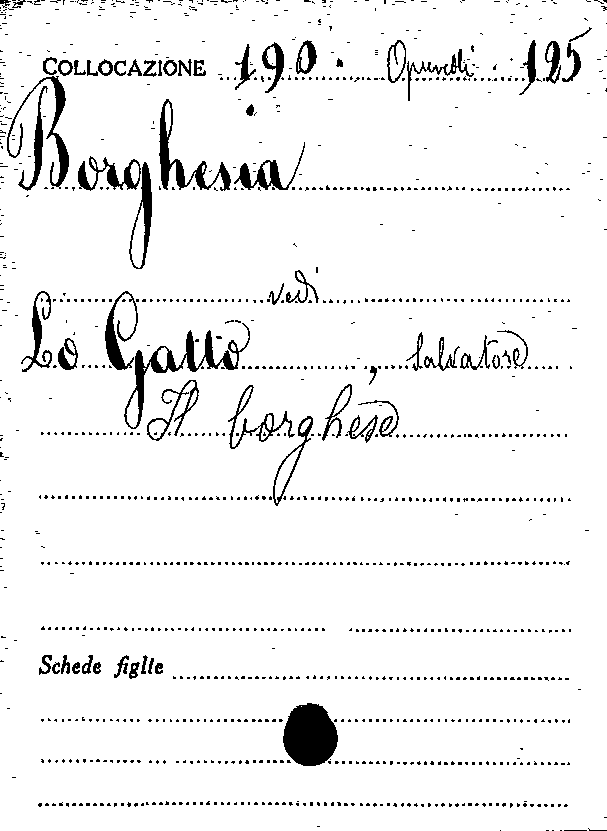 COLLOCAZIONE 190. Opuscoli. 125
Borghesia
vedi
Lo Gatto, Salvatore
Il borghese
Schede figlie